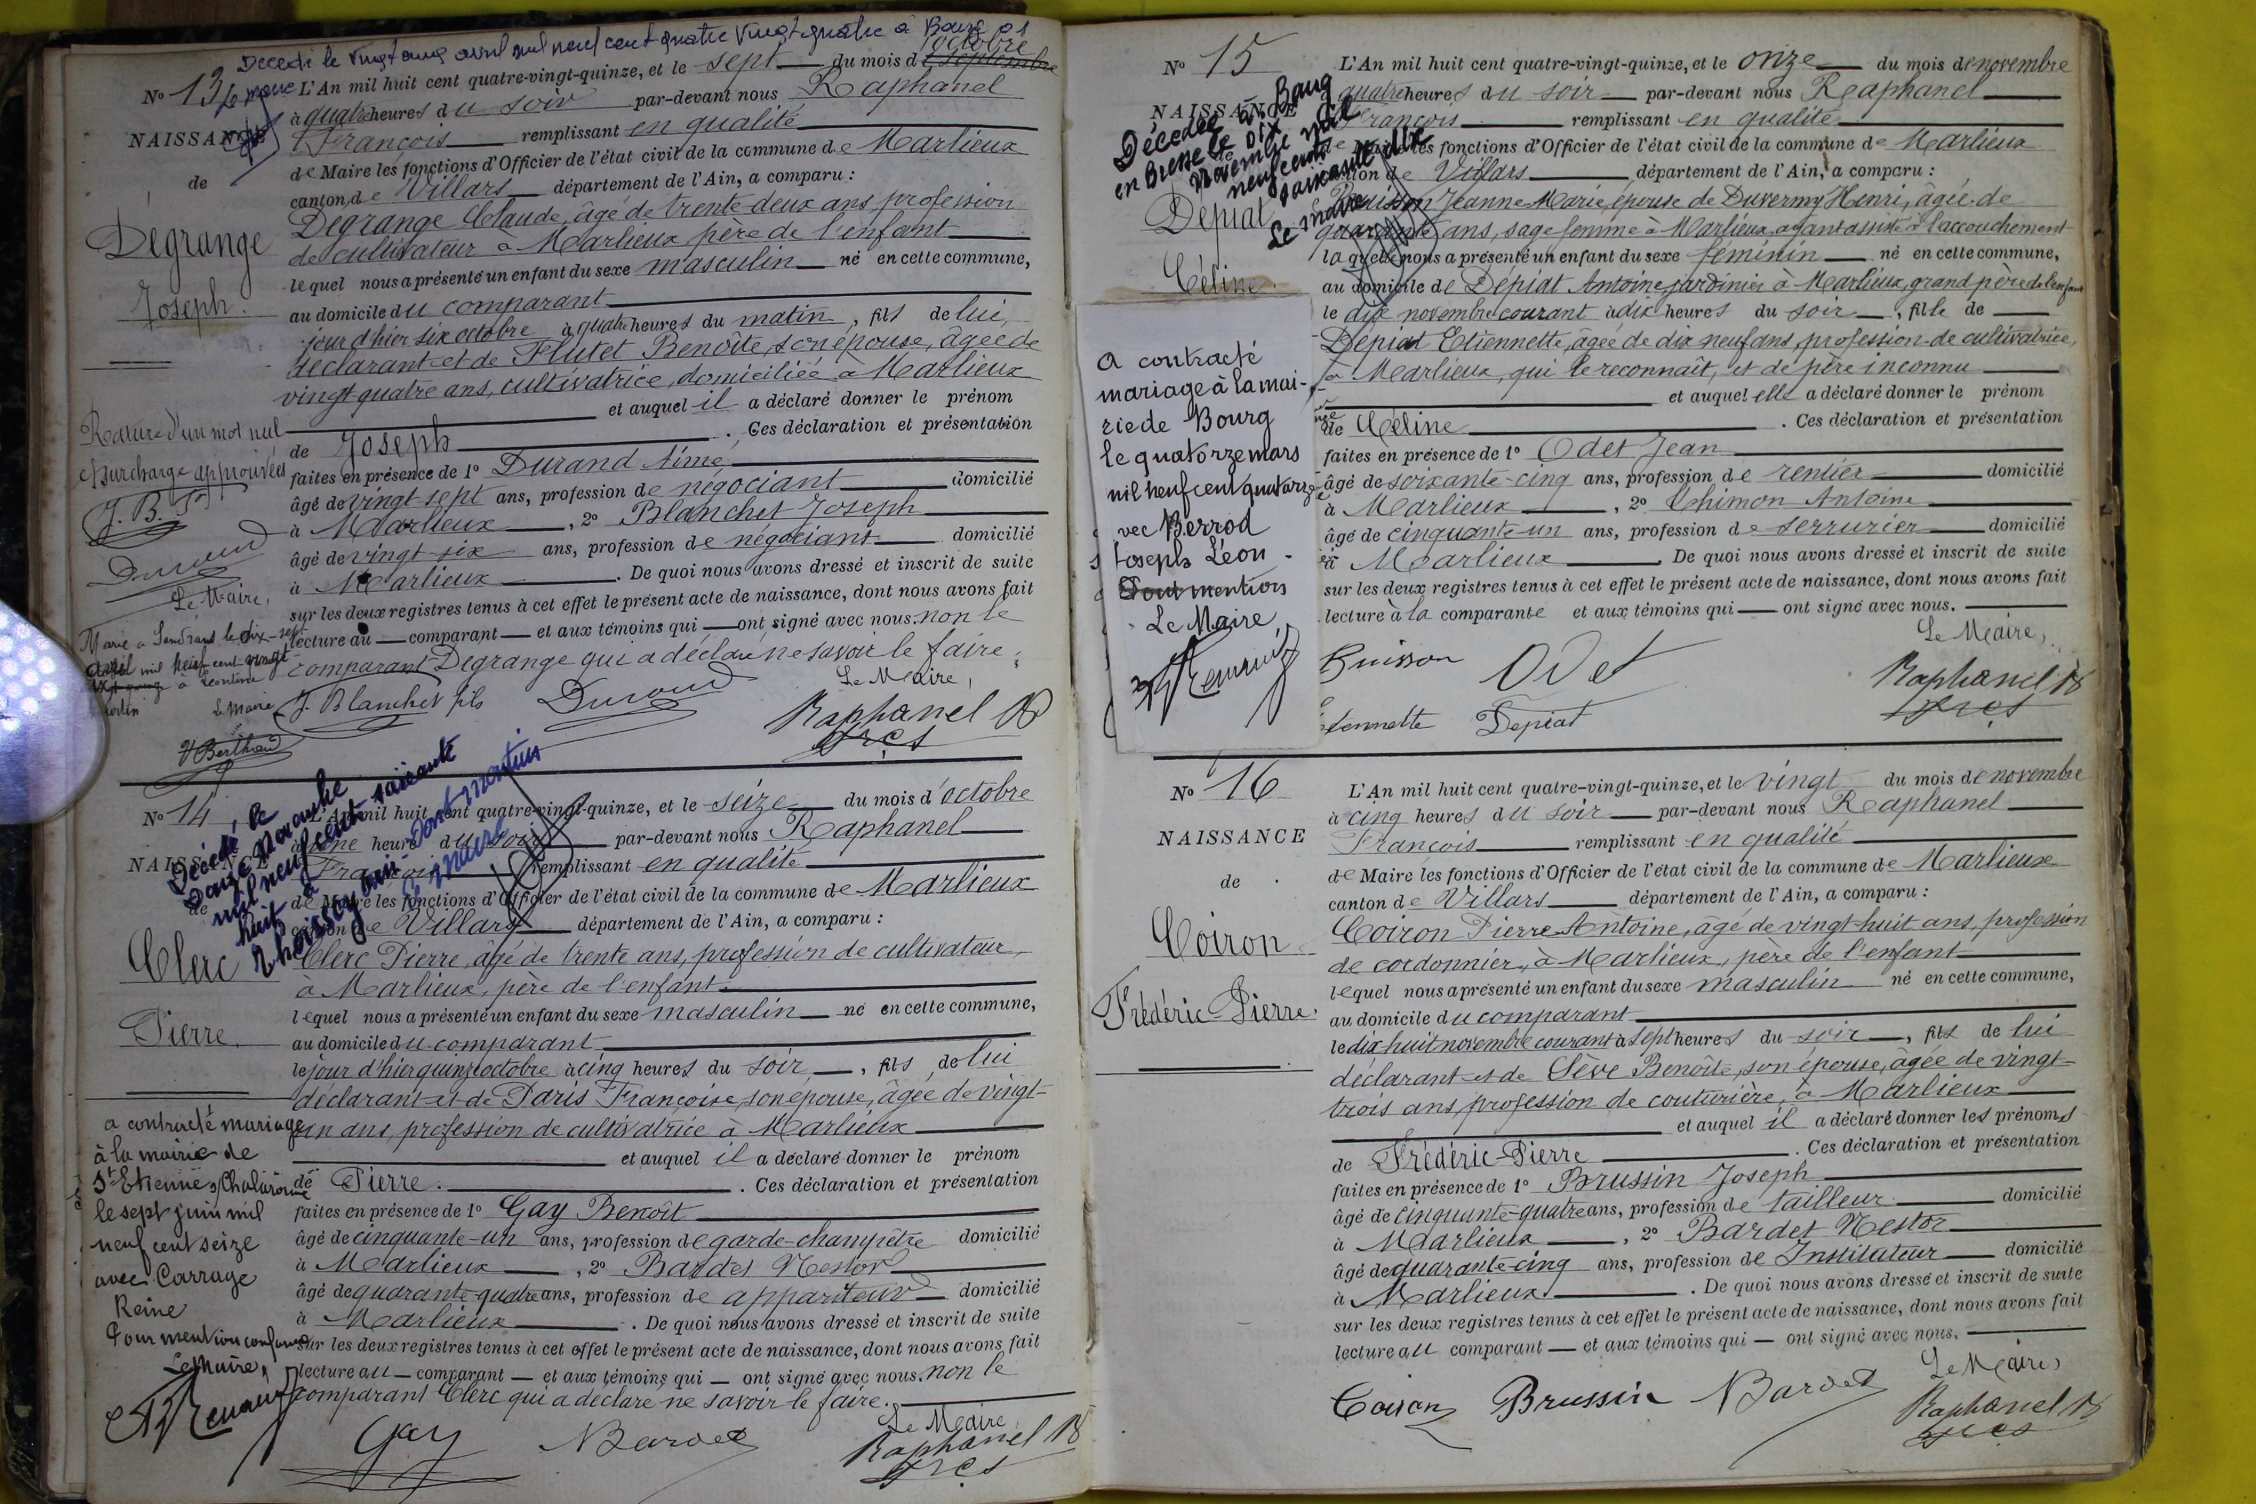 Décédé le vingt cinq avril mil neuf cent quatre vingt quatre à Bourg 01
Le maire
N° 13
NAISSANCE
de
Dégrange
Joseph.
L'An mil huit cent quatre-vingt-quinze, et le sept du mois de septembre octobre
à quatre heures du soir par-devant nous Raphanel
François remplissant en qualité
de Maire les fonctions d'Officier de l'état civil de la commune de Marlieux
canton de Villars département de l'Ain, a comparu :
Dégrange Claude, âgé de trente-deux ans, profession
de cultivateur à Marlieux père de l'enfant
lequel nous a présenté un enfant du sexe masculin né en cette commune,
au domicile du comparant
jour d'hier six octobre à quatre heures du matin, fils de lui
déclarant et de Flutet Benoîte, son épouse, âgée de
vingt-quatre ans, cultivatrice, domiciliée à Marlieux
et auquel il a déclaré donner le prénom
de Joseph. Ces déclaration et présentation
faites en présence de 1° Durand Aimé
âgé de vingt sept ans, profession de négociant domicilié
à Marlieux, 2° Blanchet Joseph
âgé de vingt-six ans, profession de négociant domicilié
à Marlieux. De quoi nous avons dressé et inscrit de suite
sur les deux registres tenus à cet effet le présent acte de naissance, dont nous avons fait
lecture au comparant et aux témoins qui ont signé avec nous. non le
comparant Dégrange qui a déclaré ne savoir le faire.
Le Maire,
J. Blanchet fils Durand Raphanel
Rature d'un mot nul
et surcharge approuvées
J. B. F
Durand
Le Maire,
Marié à Sandrans le dix-sept
avril mil neuf cent vingt
à
Le Maire
Berthaud
N° 14
NAISSANCE
de
Clerc
Pierre.
Décédé le
douze
mil neuf cent soixante
huit à
Thoissey Ain - Dont mention
Le maire
L'An mil huit cent quatre-vingt-quinze, et le seize du mois d'octobre
à une heure du soir par-devant nous Raphanel
François remplissant en qualité
de Maire les fonctions d'Officier de l'état civil de la commune de Marlieux
canton de Villars département de l'Ain, a comparu :
Clerc Pierre, âgé de trente ans, profession de cultivateur,
à Marlieux, père de l'enfant
lequel nous a présenté un enfant du sexe masculin né en cette commune,
au domicile du comparant
le jour d'hier quinze octobre à cinq heures du soir, fils de lui
déclarant et de Paris Françoise, son épouse, âgée de vingt-
un ans, profession de cultivatrice à Marlieux
et auquel il a déclaré donner le prénom
de Pierre. Ces déclaration et présentation
faites en présence de 1° Gay Benoît
âgé de cinquante-un ans, profession de garde-champêtre domicilié
à Marlieux, 2° Bardet Nestor
âgé de quarante-quatre ans, profession de appariteur domicilié
à Marlieux. De quoi nous avons dressé et inscrit de suite
sur les deux registres tenus à cet effet le présent acte de naissance, dont nous avons fait
lecture au comparant et aux témoins qui ont signé avec nous. non le
comparant Clerc qui a déclaré ne savoir le faire.
Le Maire,
Gay NBardet Raphanel
a contracté mariage
à la mairie de
St Etienne s/Chalaronne
le sept juin mil
neuf cent seize
avec Carrage
Reine
Pour mention conforme
Le Maire,
N° 15
NAISSANCE
de
Dépiat
Céline.
Décédée à Bourg
en Bresse le dix
Novembre mil
neuf cent
soixante dix
Le maire
L'An mil huit cent quatre-vingt-quinze, et le onze du mois de novembre
quatre heures du soir par-devant nous Raphanel
François remplissant en qualité
de Maire les fonctions d'Officier de l'état civil de la commune de Marlieux
canton de Villars département de l'Ain, a comparu :
Buisson Jeanne Marie, épouse de Duvermy Henri, âgée de
quarante ans, sage femme à Marlieux, ayant assisté à l'accouchement
laquelle nous a présenté un enfant du sexe féminin né en cette commune,
au domicile de Dépiat Antoine, jardinier à Marlieux, grand père de l'enfant
le dix novembre courant à dix heures du soir, fille de
Dépiat Etiennette, âgée de dix neuf ans, profession de cultivatrice,
à Marlieux, qui le reconnaît, et de père inconnu
et auquel elle a déclaré donner le prénom
de Céline. Ces déclaration et présentation
faites en présence de 1° Odet Jean
âgé de soixante-cinq ans, profession de rentier domicilié
à Marlieux, 2° Chimon Antoine
âgé de cinquante-un ans, profession de serrurier domicilié
à Marlieux. De quoi nous avons dressé et inscrit de suite
sur les deux registres tenus à cet effet le présent acte de naissance, dont nous avons fait
lecture à la comparante et aux témoins qui ont signé avec nous.
Le Maire,
Buisson Odet Raphanel
tennette Depiat
a contracté
mariage à la mai-
rie de Bourg
le quatorze mars
mil neuf cent quatorze
vec Berrod
Joseph Léon.
Dont mention
Le Maire,
N° 16
NAISSANCE
de
Coiron
Frédéric Pierre.
L'An mil huit cent quatre-vingt-quinze, et le vingt du mois de novembre
à cinq heures du soir par-devant nous Raphanel
François remplissant en qualité
de Maire les fonctions d'Officier de l'état civil de la commune de Marlieux
canton de Villars département de l'Ain, a comparu :
Coiron Pierre-Antoine, âgé de vingt-huit ans, profession
de cordonnier, à Marlieux, père de l'enfant
lequel nous a présenté un enfant du sexe masculin né en cette commune,
au domicile du comparant
le dix huit novembre courant à sept heures du soir, fils de lui
déclarant et de Sève Benoîte, son épouse, âgée de vingt-
trois ans, profession de couturière, à Marlieux
et auquel il a déclaré donner les prénoms
de Frédéric-Pierre. Ces déclaration et présentation
faites en présence de 1° Brussin Joseph
âgé de cinquante-quatre ans, profession de tailleur domicilié
à Marlieux, 2° Bardet Nestor
âgé de quarante-cinq ans, profession de Instituteur domicilié
à Marlieux. De quoi nous avons dressé et inscrit de suite
sur les deux registres tenus à cet effet le présent acte de naissance, dont nous avons fait
lecture au comparant et aux témoins qui ont signé avec nous.
Le Maire,
Coiron Brussin NBardet Raphanel